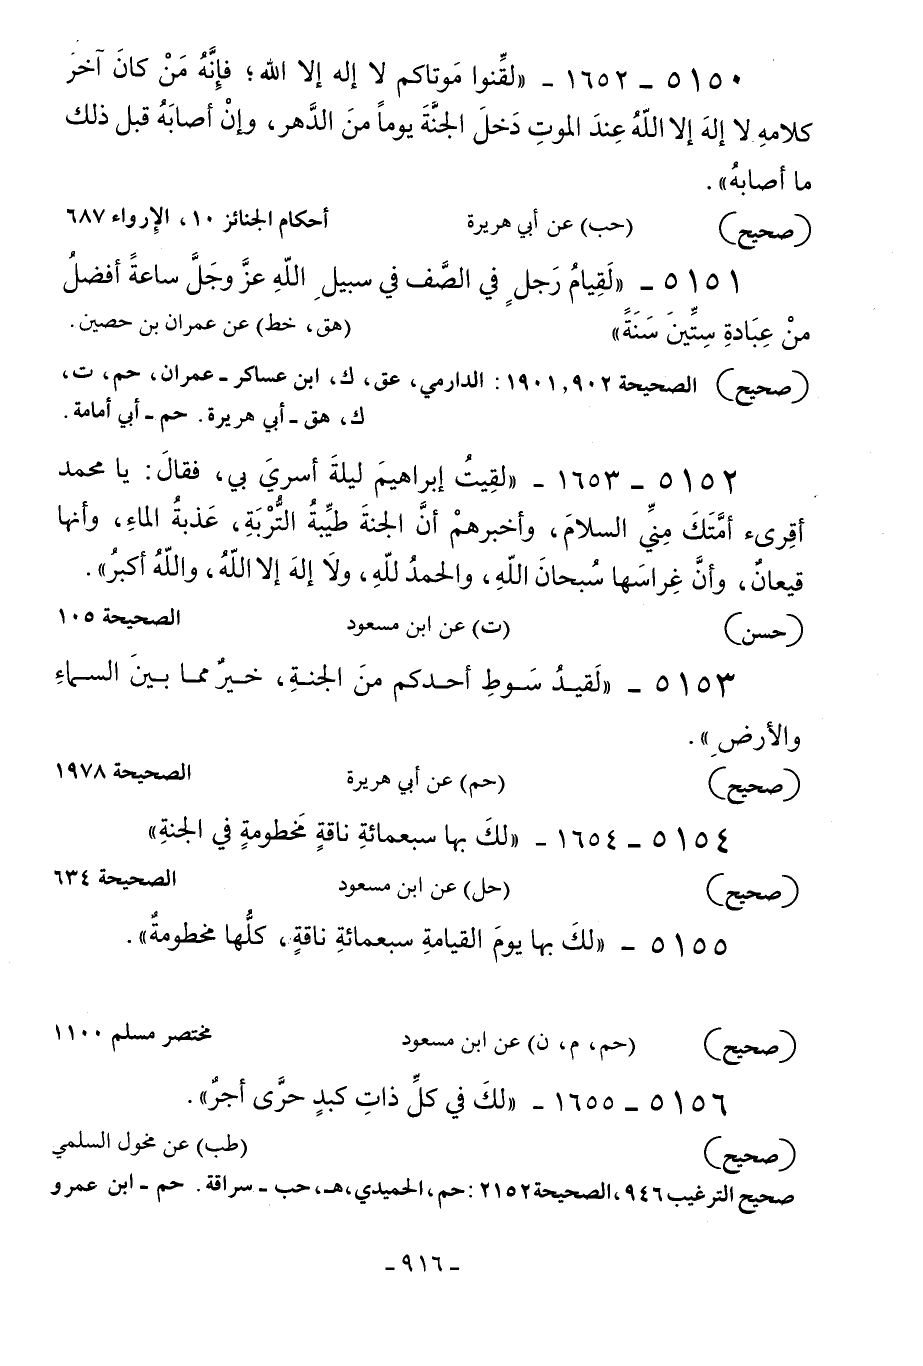 ٥١٥٠ - ١٦٥٢ - «لقِّنوا مَوتاكم لا إله إلا الله؛ فإِنَّهُ مَنْ كانَ آخرَ
كلامهِ لا إلهَ إلا اللّهُ عِندَ الموتِ دَخلَ الجنَّةَ يوماً منَ الدَّهر، وإنْ أصابَهُ قبل ذلك
ما أصابهُ».
(صحيح) (حب) عن أبي هريرة أحكام الجنائز ١٠، الإرواء ٦٨٧
٥١٥١ - «لَقِيامُ رَجلٍ في الصَّف في سبيلِ اللّهِ عزَّ وجَلَّ ساعةً أفضلُ
منْ عِبَادةِ سِتِّينَ سَنَةً» (هق، خط) عن عمران بن حصين.
(صحيح) الصحيحة ٩٠٢, ١٩٠١: الدارمي، عق، ك، ابن عساكر - عمران، حم، ت،
ك، هق - أبي هريرة. حم - أبي أمامة.
٥١٥٢ - ١٦٥٣ - «لقِيتُ إبراهيمَ ليلةَ أسريَ بي، فقالَ: يا محمد
أقِرىء أمَّتَكَ مِنِّي السلامَ، وأخبرهمْ أنَّ الجنةَ طيِّبةُ التُّرْبَةِ، عَذبةُ الماءِ، وأنها
قيعانٌ، وأنَّ غِراسَها سُبحانَ اللّهِ، والحمدُ للّهِ، ولَا إلهَ إلا اللّهُ، واللّهُ أكبرُ».
(حسن) (ت) عن ابن مسعود الصحيحة ١٠٥
٥١٥٣ - «لَقيدُ سَوطِ أحدكم منَ الجنةِ، خيرٌ مما بينَ السماءِ
والأرضِ».
(صحيح) (حم) عن أبي هريرة الصحيحة ١٩٧٨
٥١٥٤ - ١٦٥٤ - «لكَ بها سبعمائةِ ناقةٍ مَخطومةٍ في الجنةِ»
(صحيح) (حل) عن ابن مسعود الصحيحة ٦٣٤
٥١٥٥ - «لكَ بها يومَ القيامةِ سبعمائةِ ناقةٍ، كلُّها مخطومةٌ».
(صحيح) (حم، م، ن) عن ابن مسعود مختصر مسلم ١١٠٠
٥١٥٦ - ١٦٥٥ - «لكَ في كلِّ ذاتِ كبدٍ حرَّى أجرٌ».
(صحيح) (طب) عن مخول السلمي
صحيح الترغيب ٩٤٦، الصحيحة ٢١٥٢: حم، الحميدي، هـ، حب - سراقة. حم - ابن عمرو
- ٩١٦ -